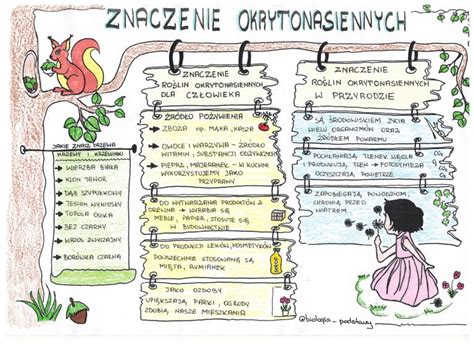 ZNACZENIE OKRYTONASIENNYCH
JAKIE ZNASZ DRZEWA
KRZEWY I KRZEWINKI
→ WIERZBA BIAŁA
→ KLON JAWOR
→ DĄB SZYPUŁKOWY
→ JESION WYNIOSŁY
→ TOPOLA OSIKA
→ BEZ CZARNY
→ WRZOS ZWYCZAJNY
→ BORÓWKA CZARNA
ZNACZENIE
ROŚLIN OKRYTONASIENNYCH
DLA CZŁOWIEKA
ŹRÓDŁO POŻYWIENIA
→ ZBOŻA np. MĄKA, KASZA
→ OWOCE I WARZYWA - ŹRÓDŁO
WITAMIN, SUBSTANCJI ODŻYWCZYCH
→ PIEPRZ, MAJERANEK - W KUCHNI
WYKORZYSTUJEMY JAKO
PRZYPRAWY
DO WYTWARZANIA PRODUKTÓW Z
DREWNA → WYRABIA SIĘ
MEBLE, PAPIER, STOSUJE SIĘ
W BUDOWNICTWIE
DO PRODUKCJI LEKÓW, KOSMETYKÓW
POWSZECHNIE STOSOWANE SĄ
MIĘTA, RUMIANEK
JAKO OZDOBY
UPIĘKSZAJĄ PARKI, OGRODY
ZDOBIĄ NASZE MIESZKANIA
ZNACZENIE
ROŚLIN OKRYTONASIENNYCH
W PRZYRODZIE
SĄ ŚRODOWISKIEM ŻYCIA
WIELU ORGANIZMÓW ORAZ
ŹRÓDŁEM POKARMU
POCHŁANIAJĄ TLENEK WĘGLA
I PRODUKUJĄ TLEN → FOTOSYNTEZA
OCZYSZCZAJĄ POWIETRZE
CO₂
O₂
ZAPOBIEGAJĄ POWODZIOM,
CHRONIĄ PRZED
WIATREM
@biologia_podstawy